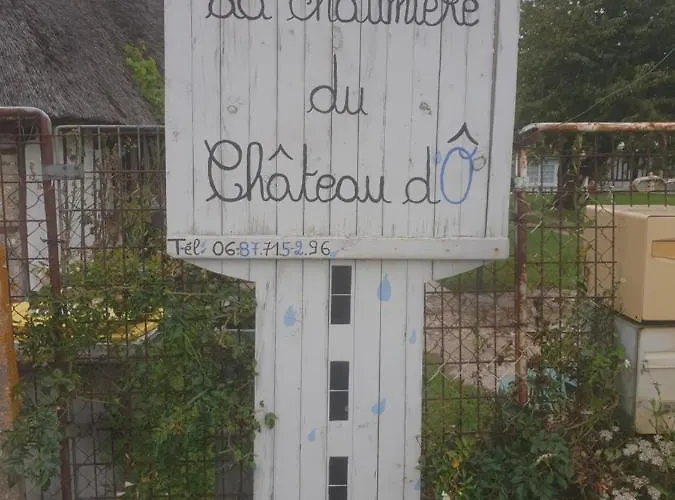 La Chaumière
du
Château d'Ô
Tél: 06.87.71.52.96